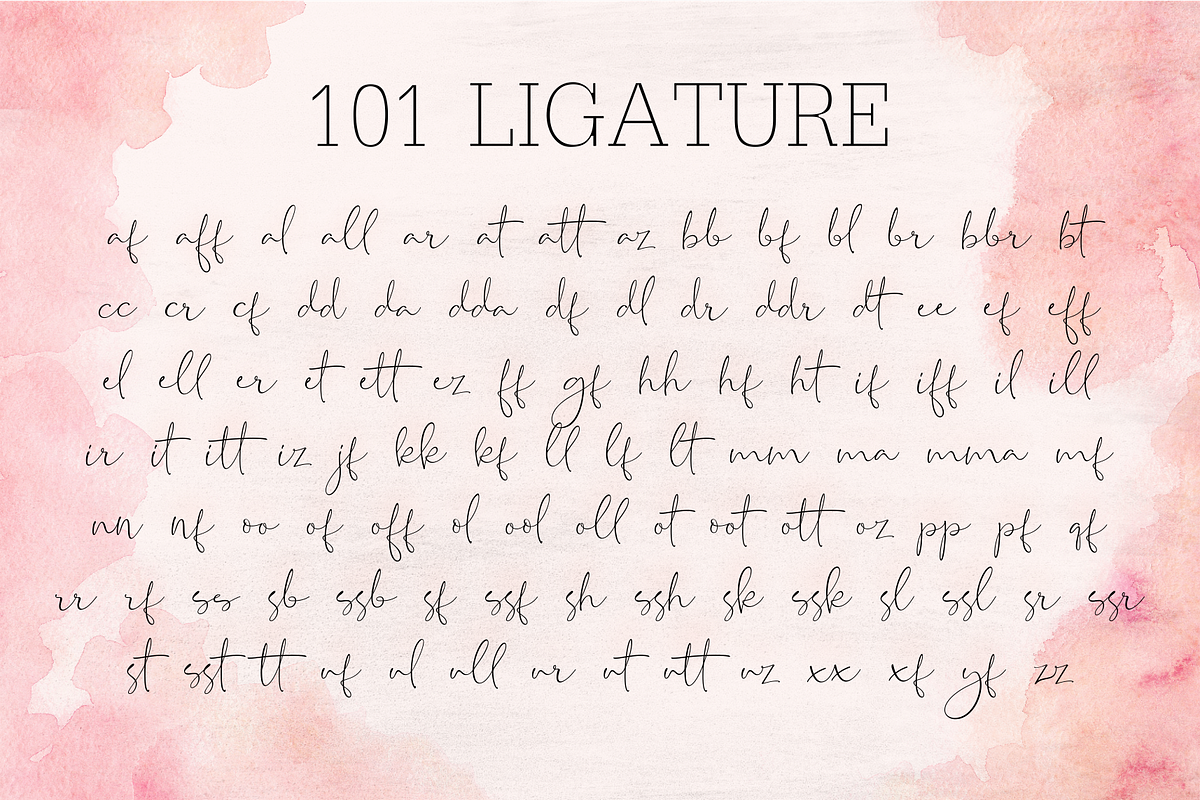 101 LIGATURE
af aff al all ar at att az bb bf bl br bbr bt
cc cr cf dd da dda df dl dr ddr dt ee ef eff
el ell er et ett ez ff gf hh hf ht if iff il ill
ir it itt iz jf kk kf ll lf lt mm ma mma mf
nn nf oo of off ol ool oll ot oot ott oz pp pf qf
rr rf ss sb ssb sf ssf sh ssh sk ssk sl ssl sr ssr
st sst tt uf ul ull ur ut utt uz xx xf yf zz